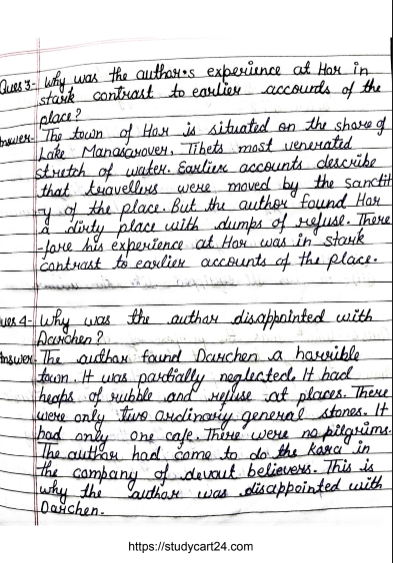 Ques 3- Why was the author's experience at Hor in
stark contrast to earlier accounts of the
place?
Answer- The town of Hor is situated on the shore of
Lake Manasarover, Tibets most venerated
stretch of water. Earlier accounts describe
that travellers were moved by the sanctit
y of the place. But the author found Hor
a dirty place with dumps of refuse. There
-fore his experience at Hor was in stark
contrast to earlier accounts of the place.
ues 4- Why was the author disappointed with
Darchen?
Answer- The author found Darchen a horrible
town. It was partially neglected. It had
heaps of rubble and refuse at places. There
were only two ordinary general stores. It
had only one cafe. There were no pilgrims.
The author had come to do the kora in
the company of devout believers. This is
why the author was disappointed with
Darchen.
https://studycart24.com